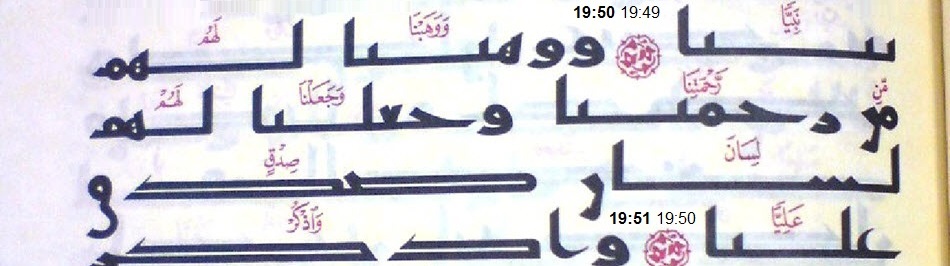 نَبِيًّا 19:49 19:50 وَوَهَبْنَا لَهُم
نبيا ووهبنا لهم
مِّن رَّحْمَتِنَا وَجَعَلْنَا لَهُمْ
من رحمتنا وجعلنا لهم
لِسَانَ صِدْقٍ
لسان صدق
عَلِيًّا 19:50 19:51 وَٱذْكُرْ
عليا واذكر